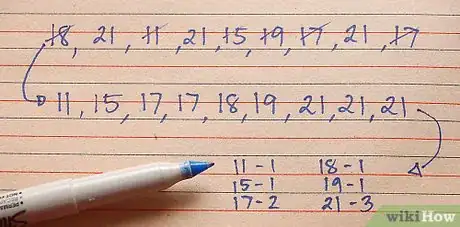 18, 21, 11, 21, 15, 19, 17, 21, 17
11, 15, 17, 17, 18, 19, 21, 21, 21
11-1 18-1
15-1 19-1
17-2 21-3
wikiHow